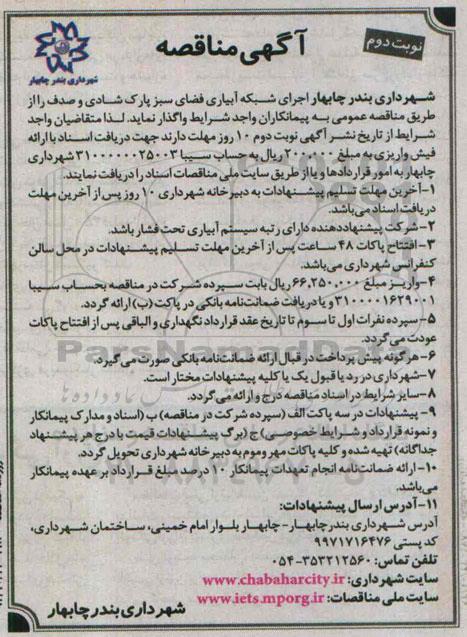 نوبت دوم
آگهی مناقصه
شهرداری بندر چابهار
شهرداری بندر چابهار اجرای شبکه آبیاری فضای سبز پارک شادی و صدف را از
طریق مناقصه عمومی به پیمانکاران واجد شرایط واگذار نماید. لذا متقاضیان واجد
شرایط از تاریخ نشر آگهی نوبت دوم ۱۰ روز مهلت دارند جهت دریافت اسناد با ارائه
فیش واریزی به مبلغ ۲،۰۰۰،۰۰۰ ریال به حساب سیبا ۳۱۰۰۰۰۰۰۲۵۰۰۳ شهرداری
چابهار به امور قراردادها و یا از طریق سایت ملی مناقصات اسناد را دریافت نمایند.
۱-آخرین مهلت تسلیم پیشنهادات به دبیرخانه شهرداری ۱۰ روز پس از آخرین مهلت
دریافت اسناد می‌باشد.
۲- شرکت پیشنهاددهنده دارای رتبه سیستم آبیاری تحت فشار باشد.
۳-افتتاح پاکات ۴۸ ساعت پس از آخرین مهلت تسلیم پیشنهادات در محل سالن
کنفرانس شهرداری می‌باشد.
۴-واریز مبلغ ۶۶،۲۵۰،۰۰۰ ریال بابت سپرده شرکت در مناقصه بحساب سیبا
۳۱۰۰۰۰۱۶۲۹۰۰۱ و یا دریافت ضمانت‌نامه بانکی در پاکت (ب) ارائه گردد.
۵- سپرده نفرات اول تا سوم تا تاریخ عقد قرارداد نگهداری و الباقی پس از افتتاح پاکات
عودت می‌گردد.
۶-هرگونه پیش پرداخت در قبال ارائه ضمانت‌نامه بانکی صورت می‌گیرد.
۷-شهرداری در رد یا قبول یک یا کلیه پیشنهادات مختار است.
۸-سایر شرایط در اسناد مناقصه درج و ارائه می‌گردد.
۹- پیشنهادات در سه پاکت الف (سپرده شرکت در مناقصه) ب (اسناد و مدارک پیمانکار
و نمونه قرارداد و شرایط خصوصی) ج (برگ پیشنهادات قیمت با درج هر پیشنهاد
جداگانه) تهیه شده و کلیه پاکات مهر و موم به دبیرخانه شهرداری تحویل گردد.
۱۰- ارائه ضمانت‌نامه انجام تعهدات پیمانکار ۱۰ درصد مبلغ قرارداد بر عهده پیمانکار
می‌باشد.
۱۱-آدرس ارسال پیشنهادات:
آدرس شهرداری بندرچابهار- چابهار بلوار امام خمینی، ساختمان شهرداری،
کد پستی ۹۹۷۱۷۱۶۴۷۶
تلفن تماس: ۳۵۳۲۱۲۵۶۰-۰۵۴
سایت شهرداری: www.chabaharcity.ir
سایت ملی مناقصات: www.iets.mporg.ir
شهرداری بندر چابهار
ParsNamadData